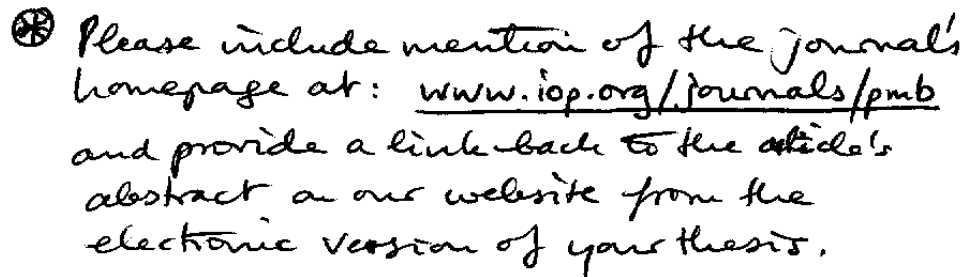 ⊛ Please include mention of the journal's
homepage at: www.iop.org/journals/pmb
and provide a link back to the article's
abstract on our website from the
electronic version of your thesis.